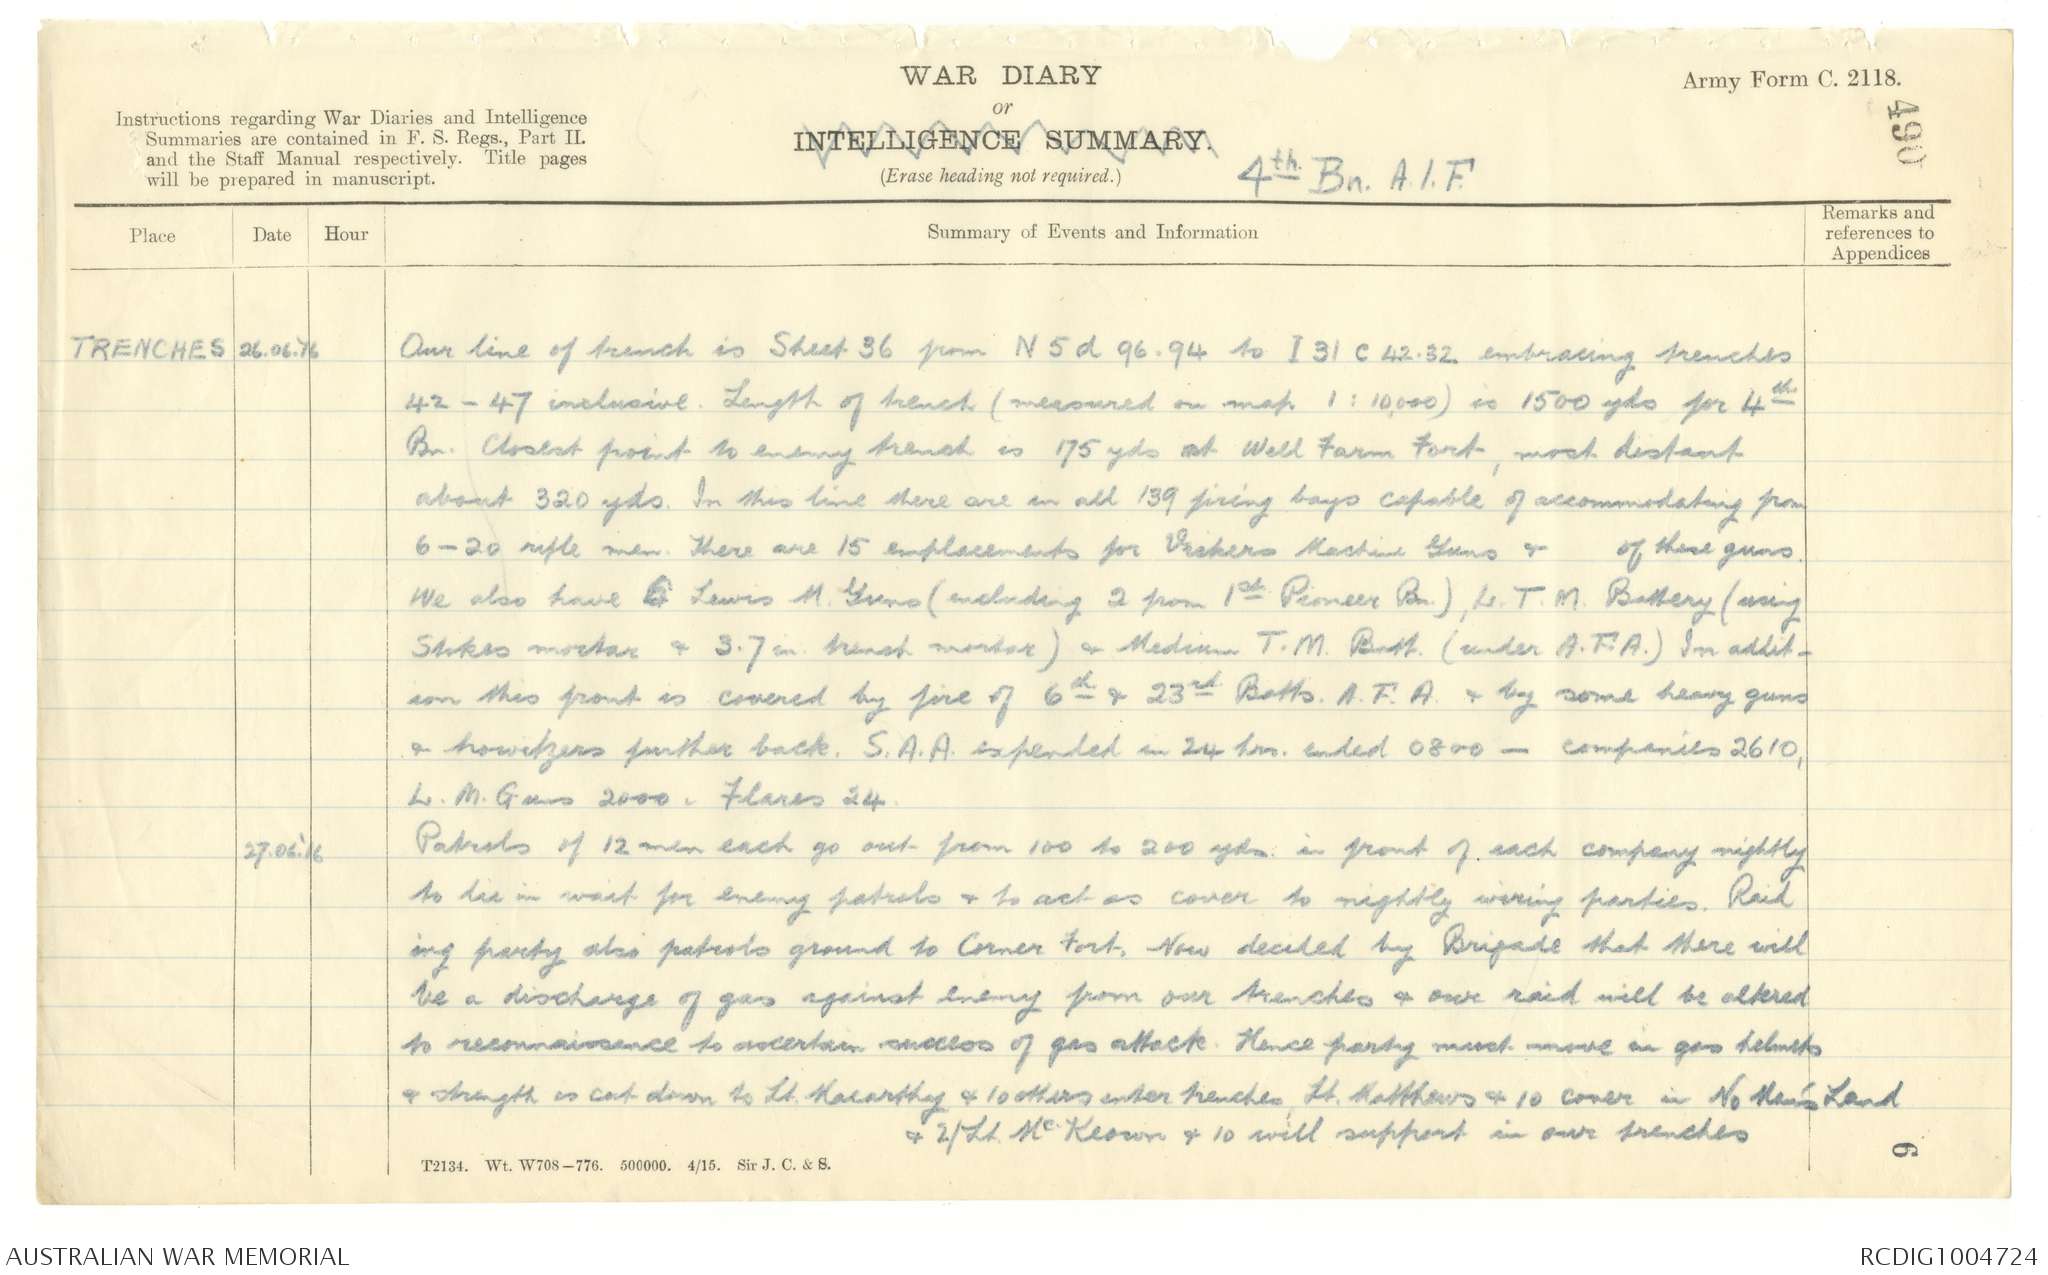 WAR DIARY
or
INTELLIGENCE SUMMARY.
(Erase heading not required.)
Army Form C. 2118.
490
Instructions regarding War Diaries and Intelligence
Summaries are contained in F. S. Regs., Part II.
and the Staff Manual respectively. Title pages
will be prepared in manuscript.
4th Bn. A.I.F.
Place
Date
Hour
Summary of Events and Information
Remarks and
references to
Appendices
TRENCHES 26.06.'16 Our line of trench is Sheet 36 from N 5 d 96.94 to I 31 c 42.32 embracing trenches
42 – 47 inclusive. Length of trench (measured on map 1 : 10,000) is 1500 yds for 4th
Bn. Closest point to enemy trench is 175 yds at Well Farm Fort, most distant
about 320 yds. In this line there are in all 139 firing bays capable of accommodating from
6 – 20 rifle men. There are 15 emplacements for Vickers Machine Guns & of these guns.
We also have 6 Lewis M. Guns (including 2 from 1st Pioneer Bn.), L. T. M. Battery (using
Stokes mortar & 3.7 in. trench mortar) & Medium T. M. Batt. (under A.F.A.) In addit-
ion this front is covered by fire of 6th & 23rd Batts. A. F. A. & by some heavy guns
& howitzers further back. S.A.A. expended in 24 hrs. ended 0800 – companies 2610,
L. M. Guns 2000. Flares 24.
27.06.'16 Patrols of 12 men each go out from 100 to 200 yds. in front of each company nightly
to lie in wait for enemy patrols & to act as cover to nightly wiring parties. Raid
ing party also patrols ground to Corner Fort. Now decided by Brigade that there will
be a discharge of gas against enemy from our trenches & our raid will be altered
to reconnaissance to ascertain success of gas attack. Hence party must move in gas helmets
& strength is cut down to Lt. Macarthy & 10 others enter trenches, Lt. Matthews & 10 cover in No Man's Land
& 2/Lt. McKeown & 10 will support in our trenches
T2134. Wt. W708–776. 500000. 4/15. Sir J. C. & S.
6
AUSTRALIAN WAR MEMORIAL
RCDIG1004724